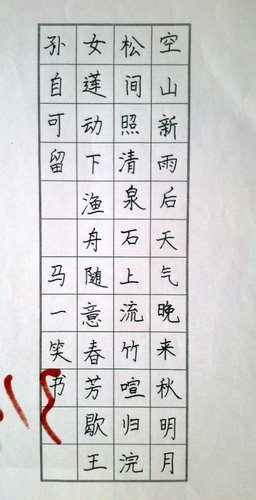 空山新雨后天气晚来秋明月
松间照清泉石上流竹喧归浣
女莲动下渔舟随意春芳歇王
孙自可留 马一笑书